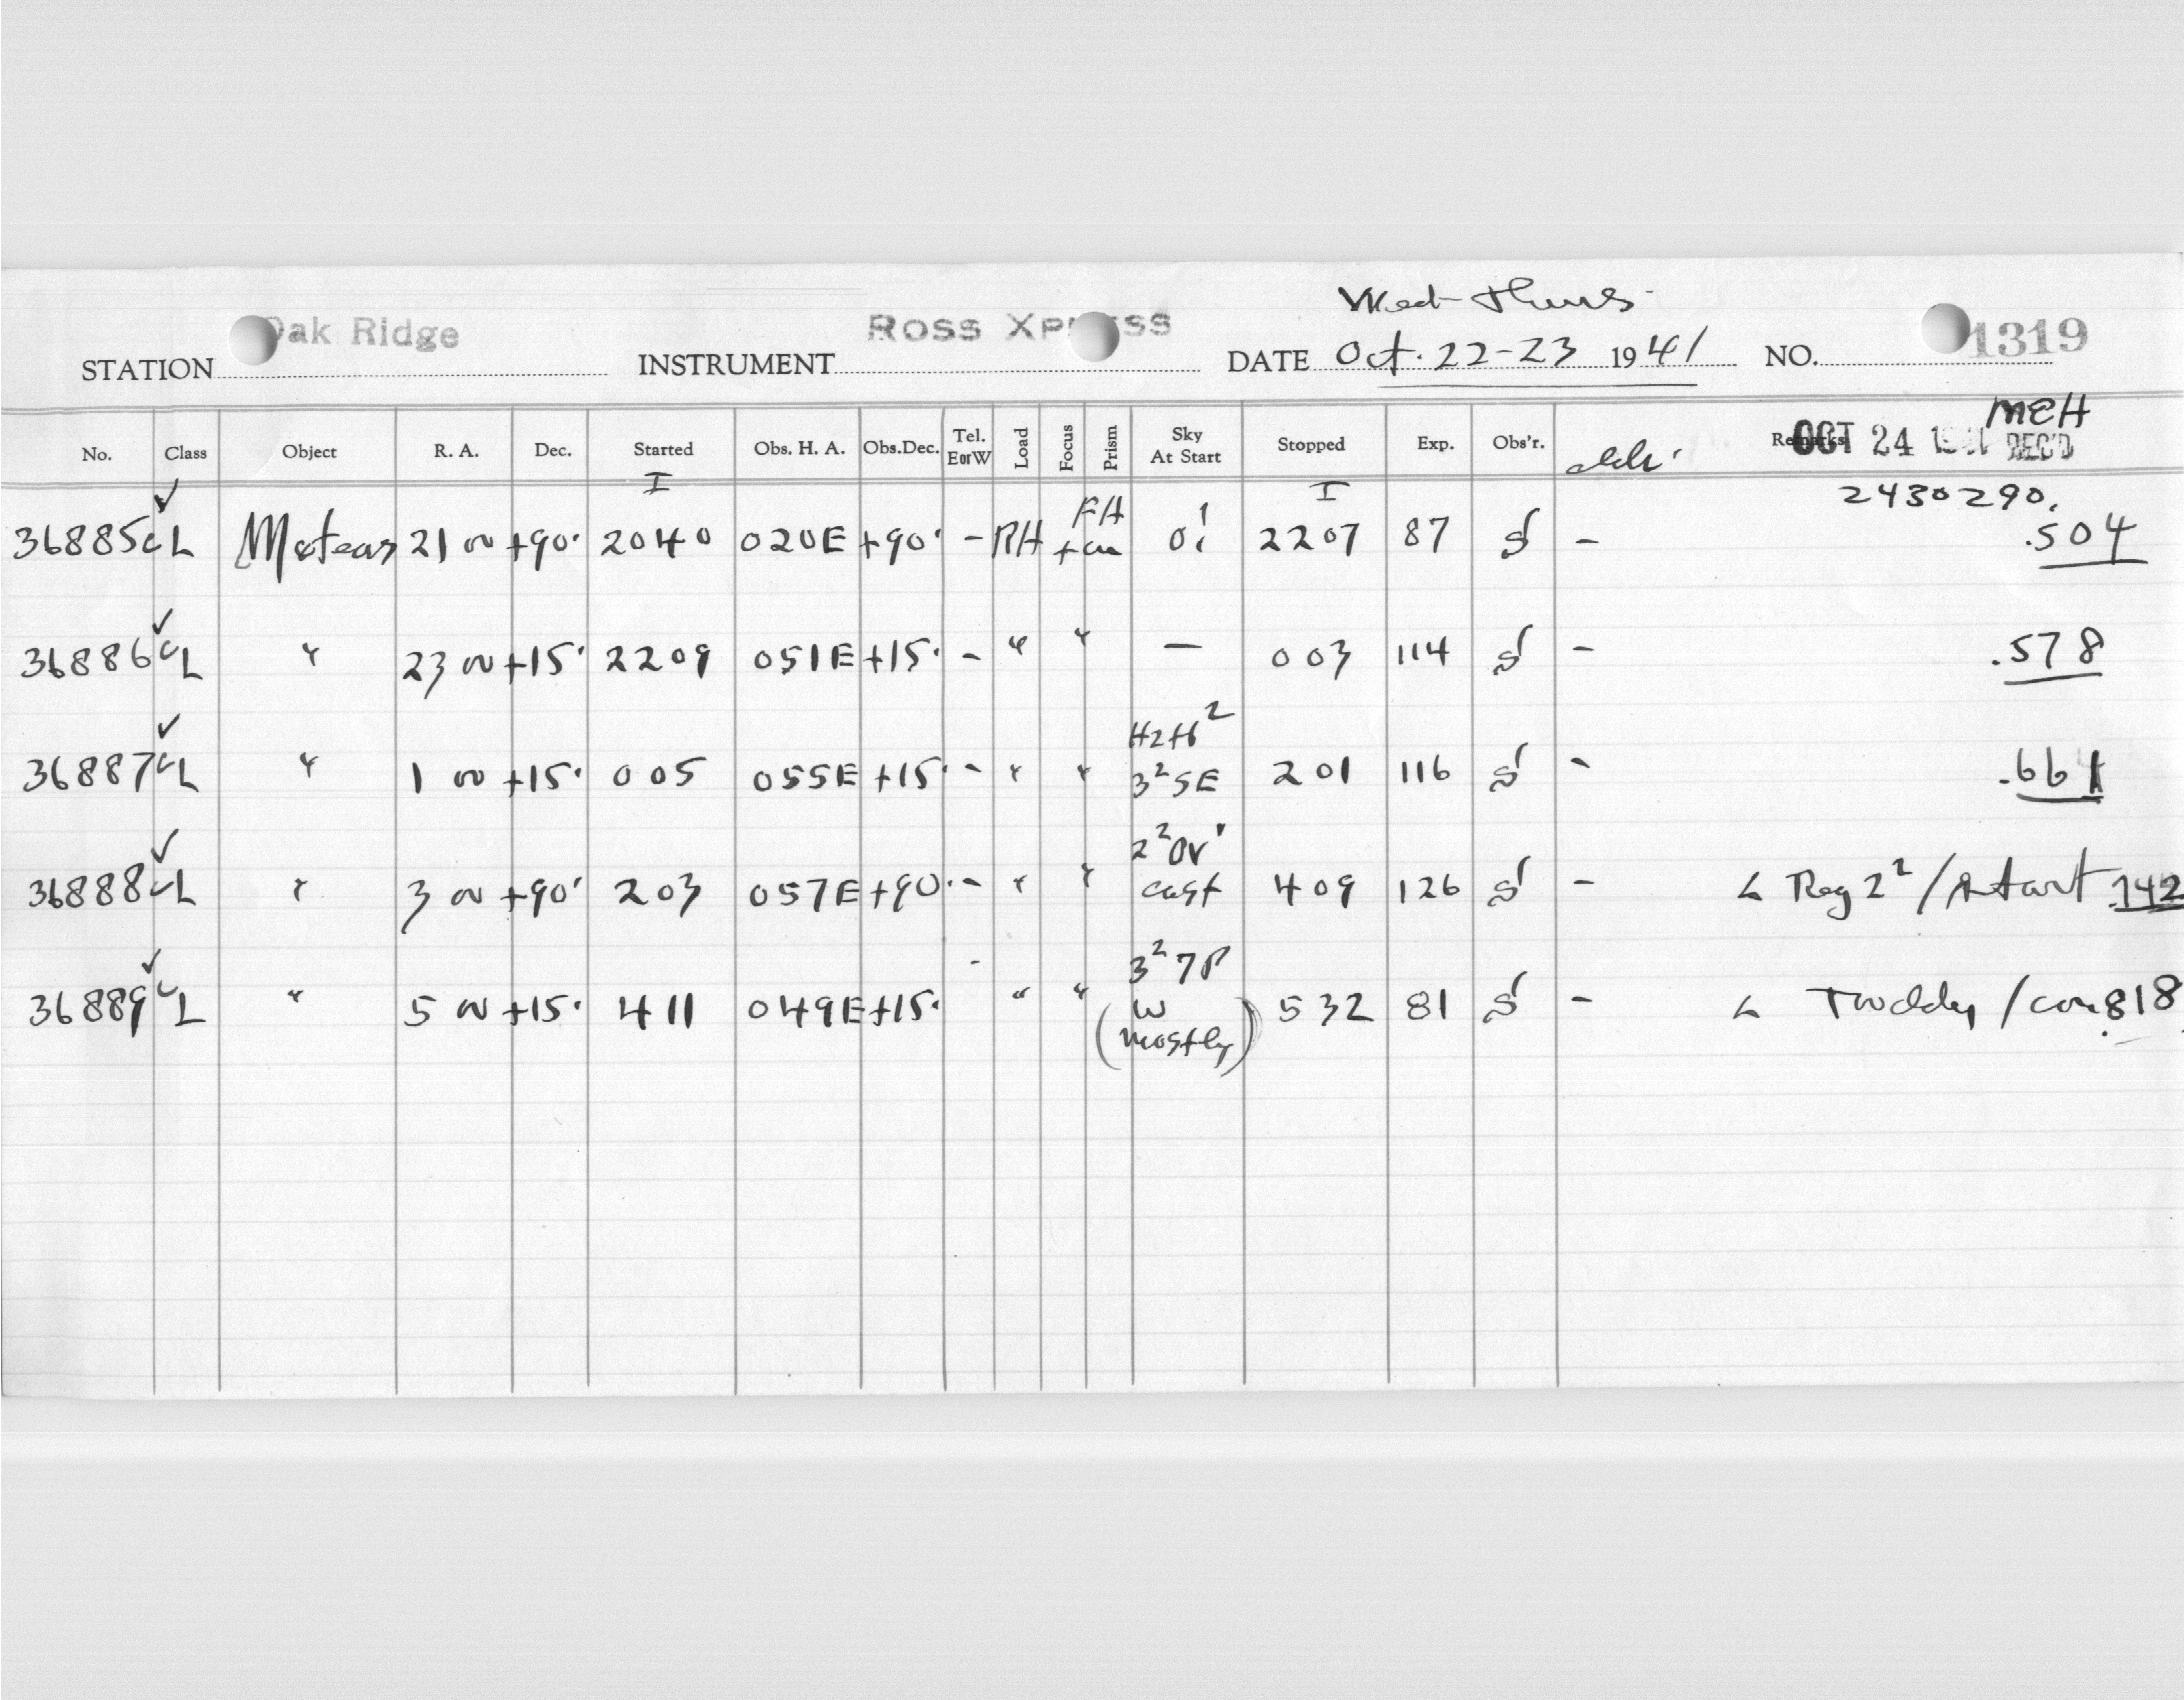 Wed-Thurs.
STATION Oak Ridge INSTRUMENT ROSS XPRESS DATE Oct. 22-23 1941 NO. 1319
MEH
No. Class Object R. A. Dec. Started Obs. H. A. Obs.Dec. Tel. EorW Load Focus Prism Sky At Start Stopped Exp. Obs'r. Remarks OCT 24 1941 REC'D
I I 2430290.
36885 cL Meteors 21 00 +90° 2040 020E +90° - RH FA 0 2207 87 S - .504
36886 cL " 23 00 +15° 2209 051E +15° - " " — 003 114 S - .578
36887 cL " 1 00 +15° 005 055E +15° - " " H2H² 3² SE 201 116 S - .661
36888 cL " 3 00 +90° 203 057E +90° - " " 2² Ov'cast 409 126 S - Reg 2² / .742
36889 cL " 5 00 +15° 411 049E +15° - " " 3² 7P W (mostly) 532 81 S - .818